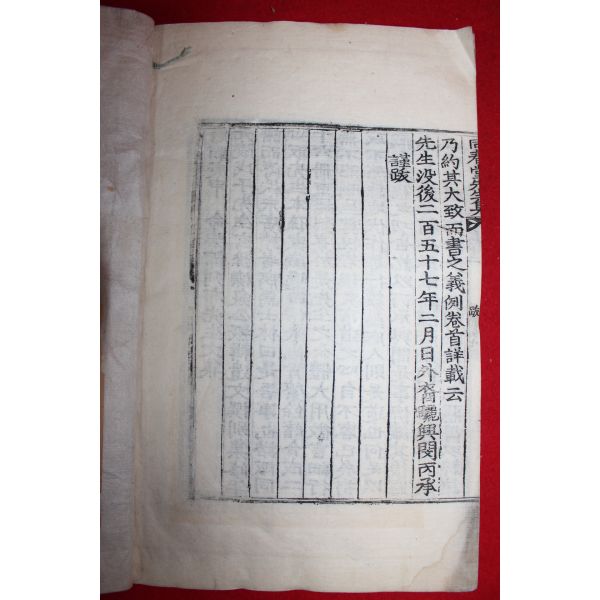 同春堂
跋
乃約其大致而書之義例卷首詳載云
先生没後二百五十七年二月日外裔驪興閔丙承
謹跋